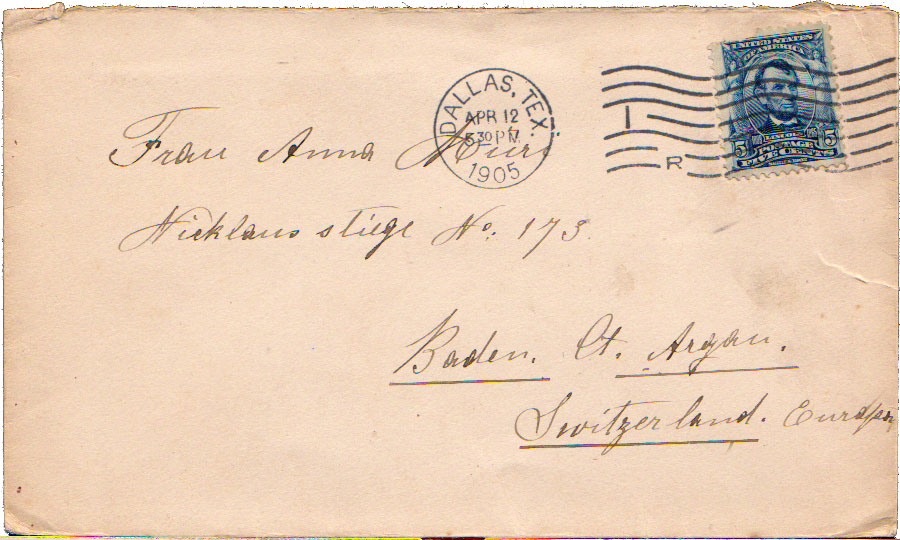 DALLAS, TEX.
APR 12
5 30 PM
1905
R
UNITED STATES
OF AMERICA
5 5
POSTAGE
FIVE CENTS
Frau Anna Muri
Nicklaus stiege No. 173.
Baden. Ct. Argau.
Switzerland. Europa